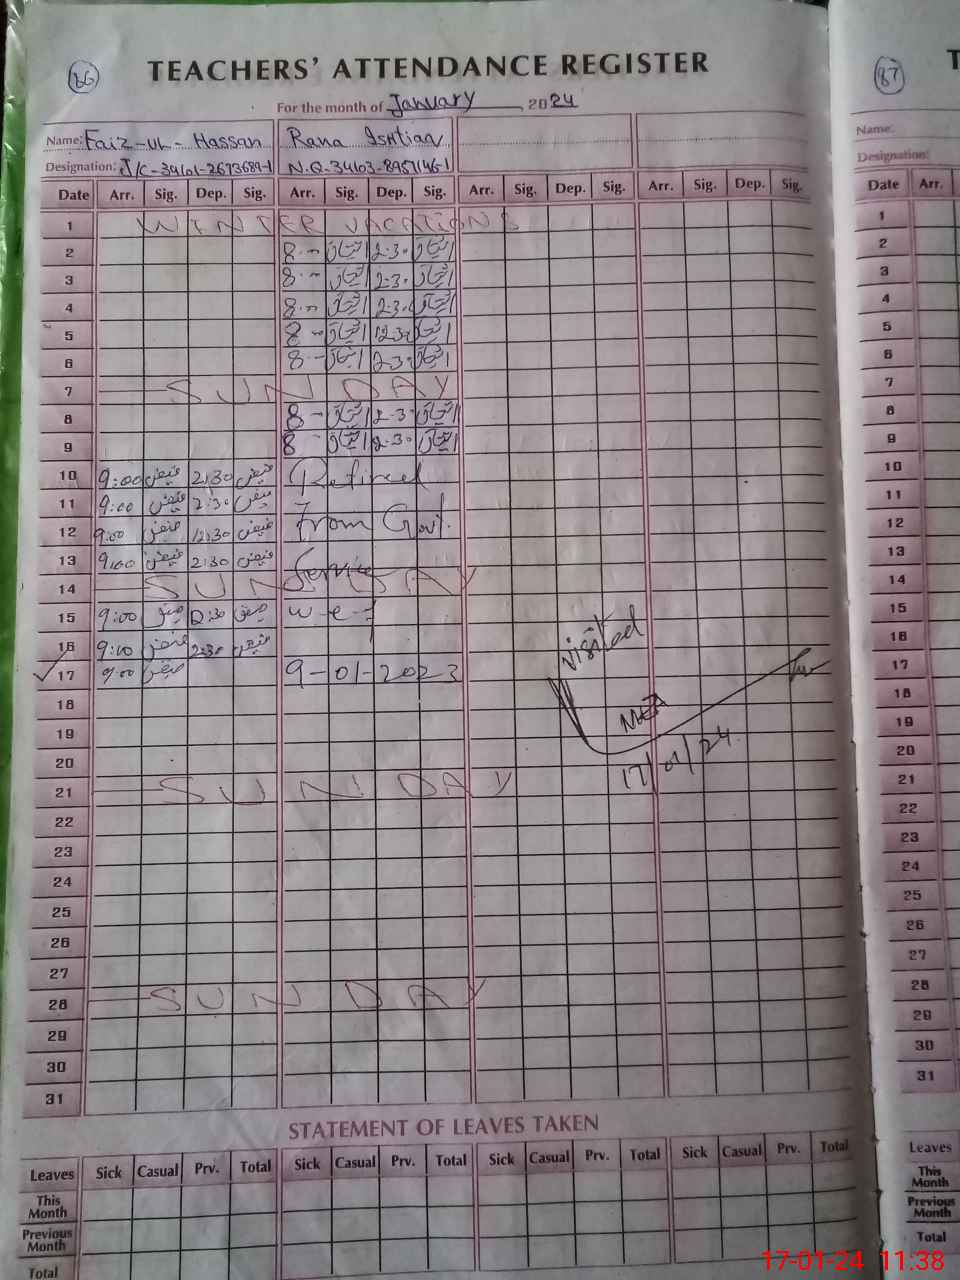 86
TEACHERS' ATTENDANCE REGISTER
For the month of January 2024
Name: Faiz-ul-Hassan Rana Ishtiaq
Designation: J/C-34101-2673689-1 N.Q.34103-8957146-1
Date Arr. Sig. Dep. Sig. Arr. Sig. Dep. Sig. Arr. Sig. Dep. Sig. Arr. Sig. Dep. Sig.
1 WINTER VACATIONS
2 8.00 اشتیاق 12.30 اشتیاق
3 8.00 اشتیاق 12.30 اشتیاق
4 8.00 اشتیاق 12.30 اشتیاق
5 8 اشتیاق 12.30 اشتیاق
6 8 اشتیاق 12.30 اشتیاق
7 SUNDAY
8 8 اشتیاق 12.30 اشتیاق
9 8 اشتیاق 12.30 اشتیاق
10 9:00 فیض 2:30 فیض Retired
11 9:00 فیض 2:30 فیض
12 9:00 فیض 12:30 فیض From Govt.
13 9:00 فیض 2:30 فیض Service
14 SUNDAY
15 9:00 فیض 2:30 فیض w-e-f
16 9:00 فیض 2:30 فیض
17 9:00 فیض 9-01-2023
18
19
20
21 SUNDAY
22
23
24
25
26
27
28 SUNDAY
29
30
31
Visited
MEA
17/01/24
STATEMENT OF LEAVES TAKEN
Leaves Sick Casual Prv. Total Sick Casual Prv. Total Sick Casual Prv. Total Sick Casual Prv. Total
This Month
Previous Month
Total
87
T
Name:
Designation:
Date Arr.
1
2
3
4
5
6
7
8
9
10
11
12
13
14
15
16
17
18
19
20
21
22
23
24
25
26
27
28
29
30
31
Leaves
This Month
Previous Month
Total
17-01-24 11:38